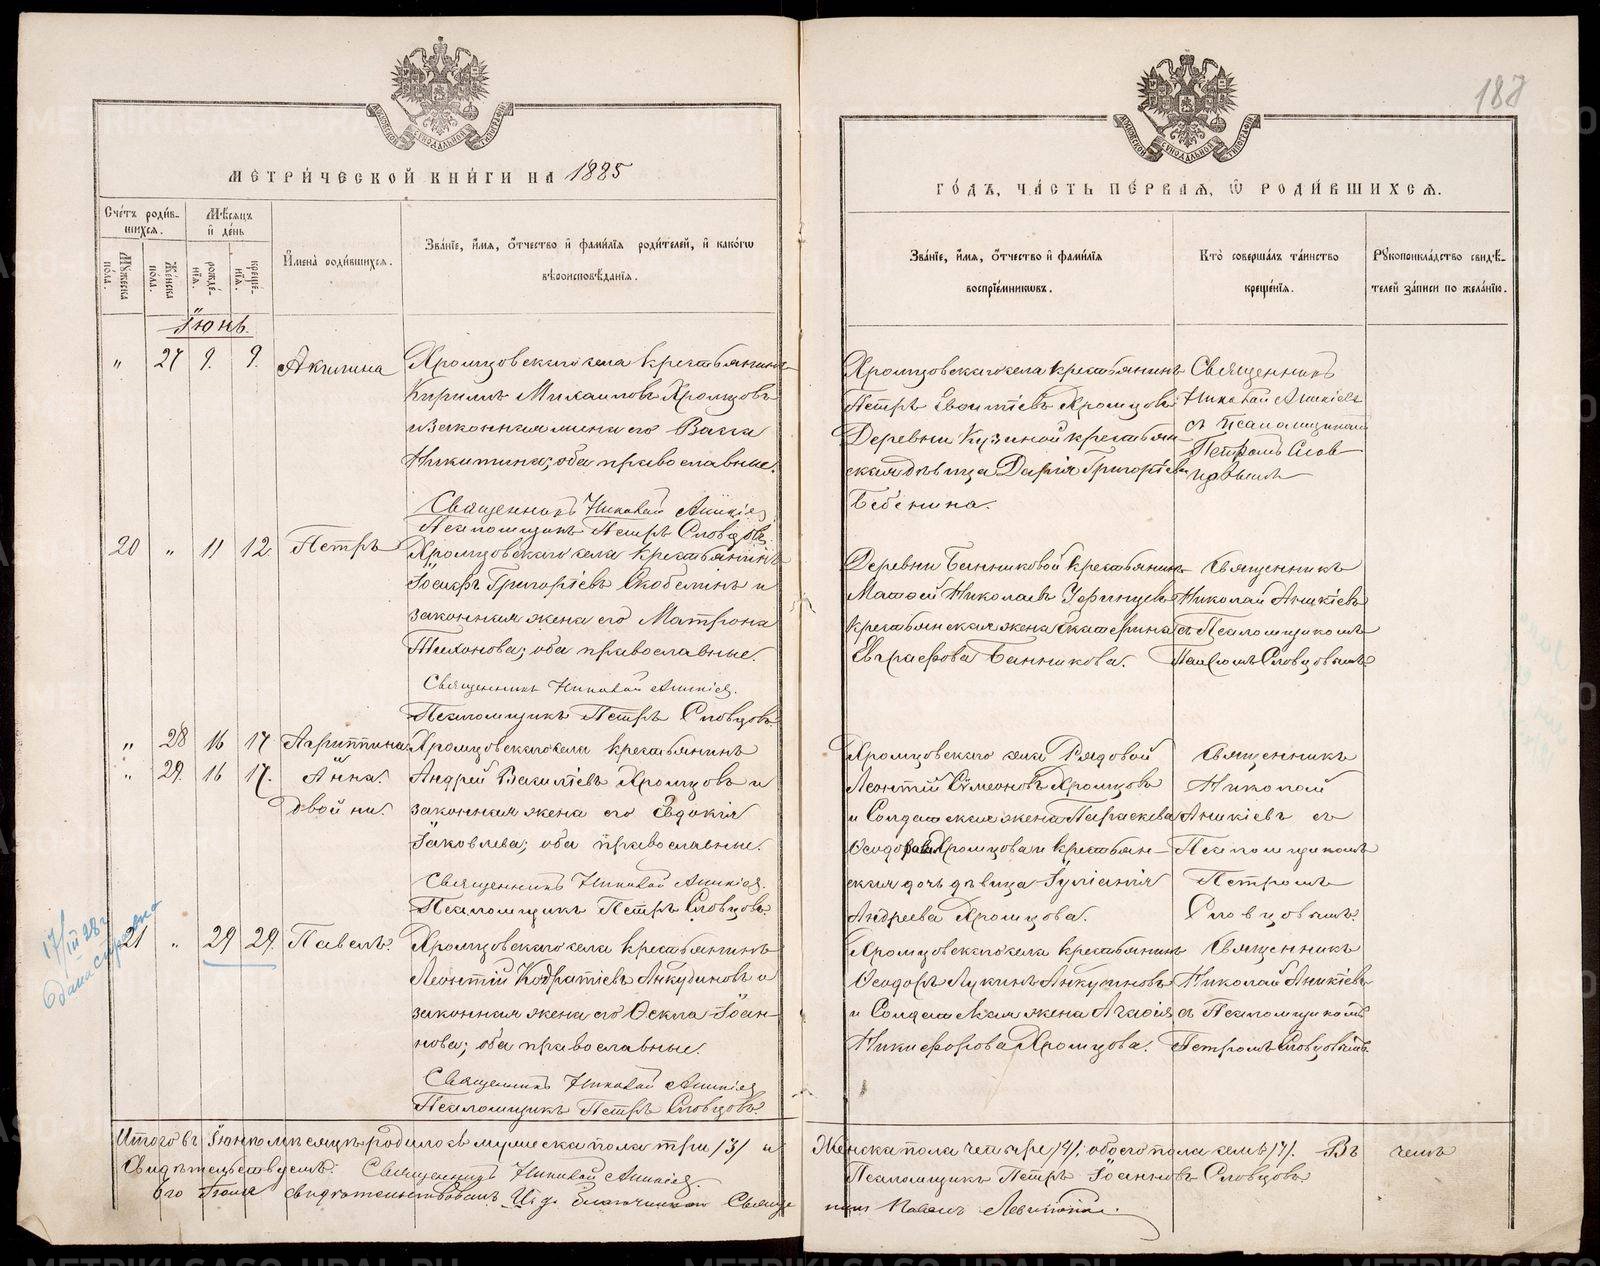 188
МЕТРИЧЕСКОЙ КНИГИ НА 1885
ГОДЪ, ЧАСТЬ ПЕРВАЯ, Ѿ РОДИВШИХСЯ.
Счетъ родив-
шихся.
Мѣсяцъ
и день
Мужеска
пола.
Женска
пола.
рожде-
нія.
креще-
нія.
Имена родившихся.
Званіе, имя, отчество и фамилія родителей, и какогѡ
вѣроисповѣданія.
Званіе, имя, отчество и фамилія
воспріемниковъ.
Кто совершалъ таинство
крещенія.
Рукоприкладство свидѣ-
телей записи по желанію.
Іюнь.
" 27 9. 9. Акилина
Хромцовскаго села крестьянинъ
Кириллъ Михаиловъ Хромцовъ
и законная жена его Васса
Никитина; оба православные.
Священникъ Николай Аникіев
Псаломщикъ Петръ Словцовъ.
Хромцовскаго села крестьянинъ
Петръ Хромцовъ
Деревни Кузиной крестьян-
ская дѣвица Дарія Григоріева
Бебенина.
Священникъ
Николай Аникіевъ
съ псаломщикомъ
Петромъ Слов-
цовымъ
20 " 11 12 Петръ
Хромцовскаго села крестьянинъ
Іосифъ Григоріевъ Скобелинъ и
законная жена его Матрона
Тихонова; оба православные.
Священникъ Николай Аникіев.
Псаломщикъ Петръ Словцовъ
Деревни Банниковой крестьянинъ
Матѳей Николаевъ
крестьянская жена Екатерина
Евграфова Банникова.
Священникъ
Николай Аникіевъ
съ Псаломщикомъ
Павломъ Словцовымъ
" 28 16 17 Агриппина
" 29. 16 17. Анна.
двойни.
Хромцовскаго села крестьянинъ
Андрей Василіевъ Хромцовъ и
законная жена его Евдокія
Іаковлева; оба православные.
Священникъ Николай Аникіев.
Псаломщикъ Петръ Словцовъ.
Хромцовскаго села Рядовой
Леонтій Сѵмеоновъ Хромцовъ
и Солдатская жена Параскева
Ѳеодорова Хромцова и крестьян-
ская дочь дѣвица Іуліанія
Андреева Хромцова.
Священникъ
Николай
Аникіевъ съ
Псаломщикомъ
Петромъ
Словцовымъ.
17/III 28 г
дана справка
21 " 29 29. Павелъ.
Хромцовскаго села крестьянинъ
Леонтій Кодратіевъ Анкудиновъ и
законная жена его Ѳекла Іоан-
нова; оба православные.
Священникъ Николай Аникіев
Псаломщикъ Петръ Словцовъ.
Хромцовскаго села крестьянинъ
Ѳеодоръ Лукинъ Анкудиновъ
и Солдатская жена Агафія
Никифорова Хромцова.
Священникъ
Николай Аникіевъ
съ Псаломщикомъ
Петромъ Словцовымъ.
Итого въ Іюнѣ мѣсяцѣ родилось мужеска пола три /3/ и
Женска пола четыре /4/. обоего пола семь /7/. Въ чемъ
Свидѣтельствуемъ: Священникъ Николай Аникіев.
Псаломщикъ Петръ Іоанновъ Словцовъ
свидѣтельствовалъ И. д. благочиннаго Священ
никъ Павелъ